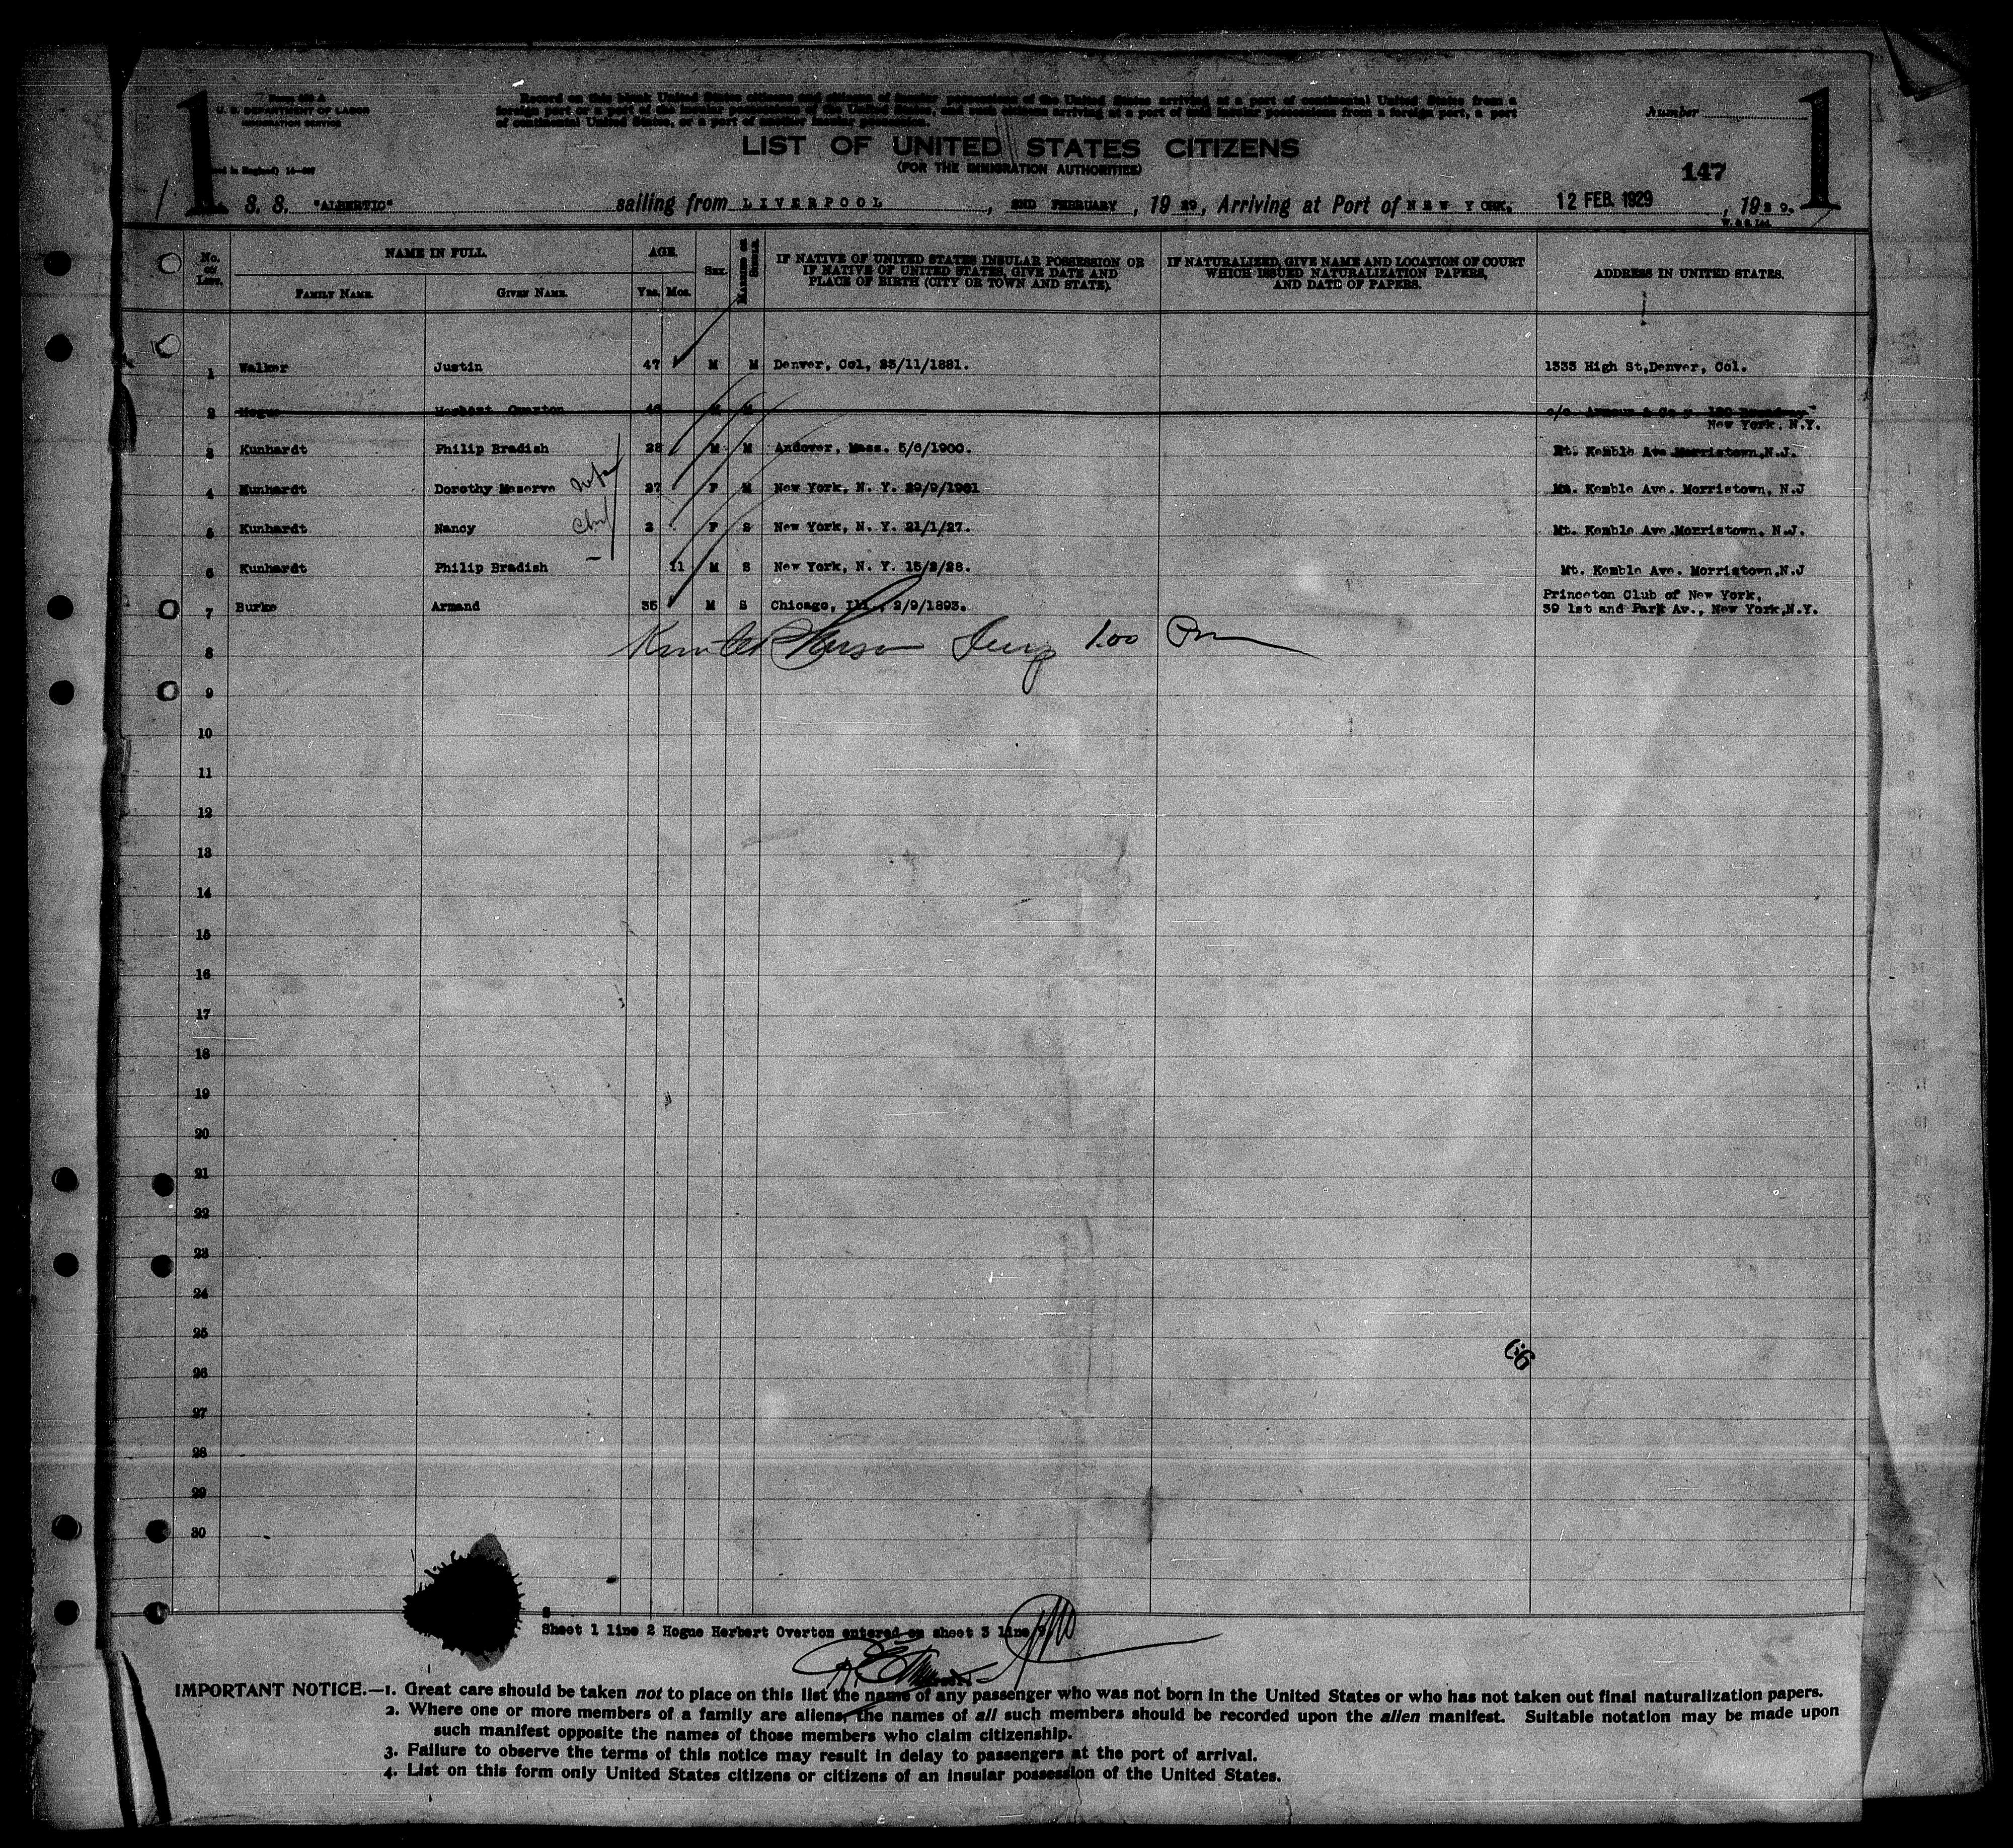 1
Form 630 A
U. S. DEPARTMENT OF LABOR
IMMIGRATION SERVICE
Record on this blank United States citizens and citizens of insular possessions of the United States arriving at a port of continental United States from a
foreign port or a port of the insular possessions of the United States, and such citizens arriving at a port of said insular possessions from a foreign port, a port
of continental United States, or a port of another insular possession.
Number
1
LIST OF UNITED STATES CITIZENS
(FOR THE IMMIGRATION AUTHORITIES)
147
S. S. "ALBERTIC" sailing from LIVERPOOL, 2ND FEBRUARY, 1929, Arriving at Port of NEW YORK, 12 FEB. 1929, 1929.
W. & S. Ltd.
No. on List.
NAME IN FULL.
FAMILY NAME.
GIVEN NAME.
AGE.
Yrs. Mos.
SEX.
MARRIED OR SINGLE.
IF NATIVE OF UNITED STATES INSULAR POSSESSION OR
IF NATIVE OF UNITED STATES, GIVE DATE AND
PLACE OF BIRTH (CITY OR TOWN AND STATE).
IF NATURALIZED, GIVE NAME AND LOCATION OF COURT
WHICH ISSUED NATURALIZATION PAPERS,
AND DATE OF PAPERS.
ADDRESS IN UNITED STATES.
1 Walker Justin 47 M M Denver, Col, 23/11/1881. 1333 High St,Denver, Col.
2 Hogue Herbert M M c/o. Armour & Co
New York, N.Y.
3 Kunhardt Philip Bradish 28 M M Andover, Mass. 5/6/1900. Mt. Kemble Ave Morristown,N.J.
4 Kunhardt Dorothy Meserve wife 27 F M New York, N. Y. 29/9/1901 Mt. Kemble Ave. Morristown, N.J
5 Kunhardt Nancy 2 F S New York, N. Y. 21/1/27. Mt. Kemble Ave.Morristown, N.J.
6 Kunhardt Philip Bradish 11 M S New York, N. Y. 15/2/28. Mt. Kemble Ave. Morristown,N.J
7 Burke Armand 35 M S Chicago, Ill., 2/9/1893. Princeton Club of New York,
39 1st and Park Av., New York,N.Y.
1.00 Pm
8
9
10
11
12
13
14
15
16
17
18
19
20
21
22
23
24
25
26
27
28
29
30
Sheet 1 line 2 Hogue Herbert Overton entered on sheet 3 line 9
IMPORTANT NOTICE.—1. Great care should be taken not to place on this list the name of any passenger who was not born in the United States or who has not taken out final naturalization papers.
2. Where one or more members of a family are aliens, the names of all such members should be recorded upon the alien manifest. Suitable notation may be made upon
such manifest opposite the names of those members who claim citizenship.
3. Failure to observe the terms of this notice may result in delay to passengers at the port of arrival.
4. List on this form only United States citizens or citizens of an insular possession of the United States.